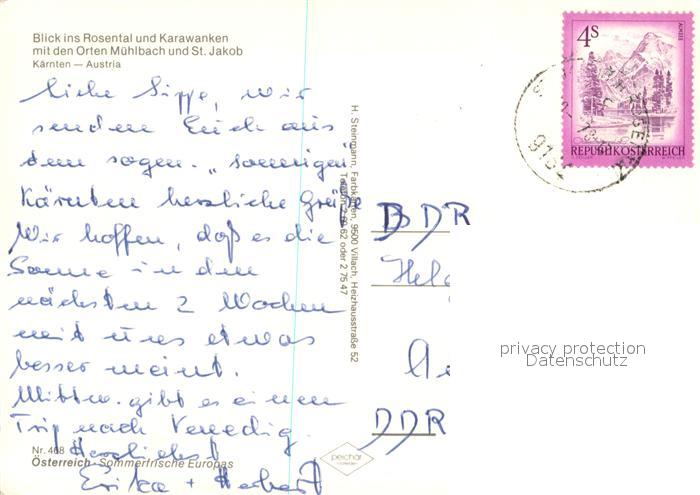 Blick ins Rosental und Karawanken
mit den Orten Mühlbach und St. Jakob
Kärnten — Austria
Liebe Sippe, wir
senden Euch aus
dem sogen. „sonnigen"
Kärnten herzliche Grüße
Wir hoffen, daß es die
Sonne in den
nächsten 2 Wochen
mit uns etwas
besser meint.
Mittw. gibt es einen
Trip nach Venedig.
Herzlichst
Erika + Herbert
Nr. 468
Österreich - Sommerfrische Europas
H. Steinmann, Farbkarten, 9500 Villach, Heizhausstraße 52
Telefon 2 60 62 oder 2 75 47
4S
ALMSEE
REPUBLIK ÖSTERREICH
DDR
Hel
DDR
privacy protection
Datenschutz